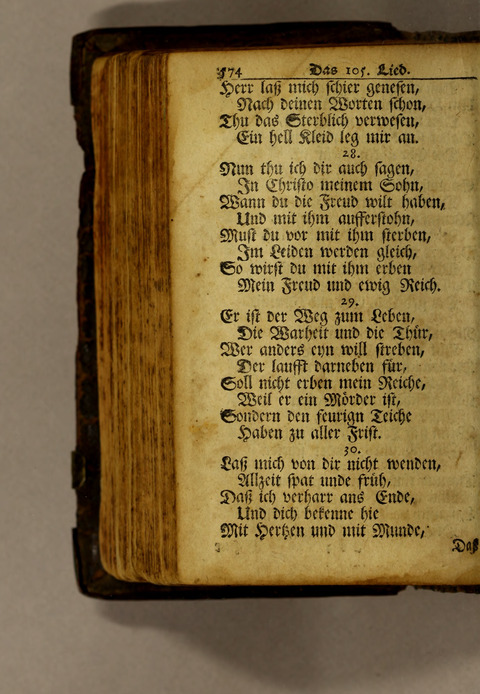 574 Das 105. Lied.
Herr laß mich schier genesen,
Nach deinen Worten schon,
Thu das Sterblich verwesen,
Ein hell Kleid leg mir an.
28.
Nun thu ich dir auch sagen,
In Christo meinem Sohn,
Wann du die Freud wilt haben,
Und mit ihm aufferstohn,
Must du vor mit ihm sterben,
Im Leiden werden gleich,
So wirst du mit ihm erben
Mein Freud und ewig Reich.
29.
Er ist der Weg zum Leben,
Die Warheit und die Thür,
Wer anders eyn will streben,
Der laufft darneben für,
Soll nicht erben mein Reiche,
Weil er ein Mörder ist,
Sondern den feurign Teiche
Haben zu aller Frist.
30.
Laß mich von dir nicht wenden,
Allzeit spat unde früh,
Daß ich verharr ans Ende,
Und dich bekenne hie
Mit Hertzen und mit Munde,
Daß